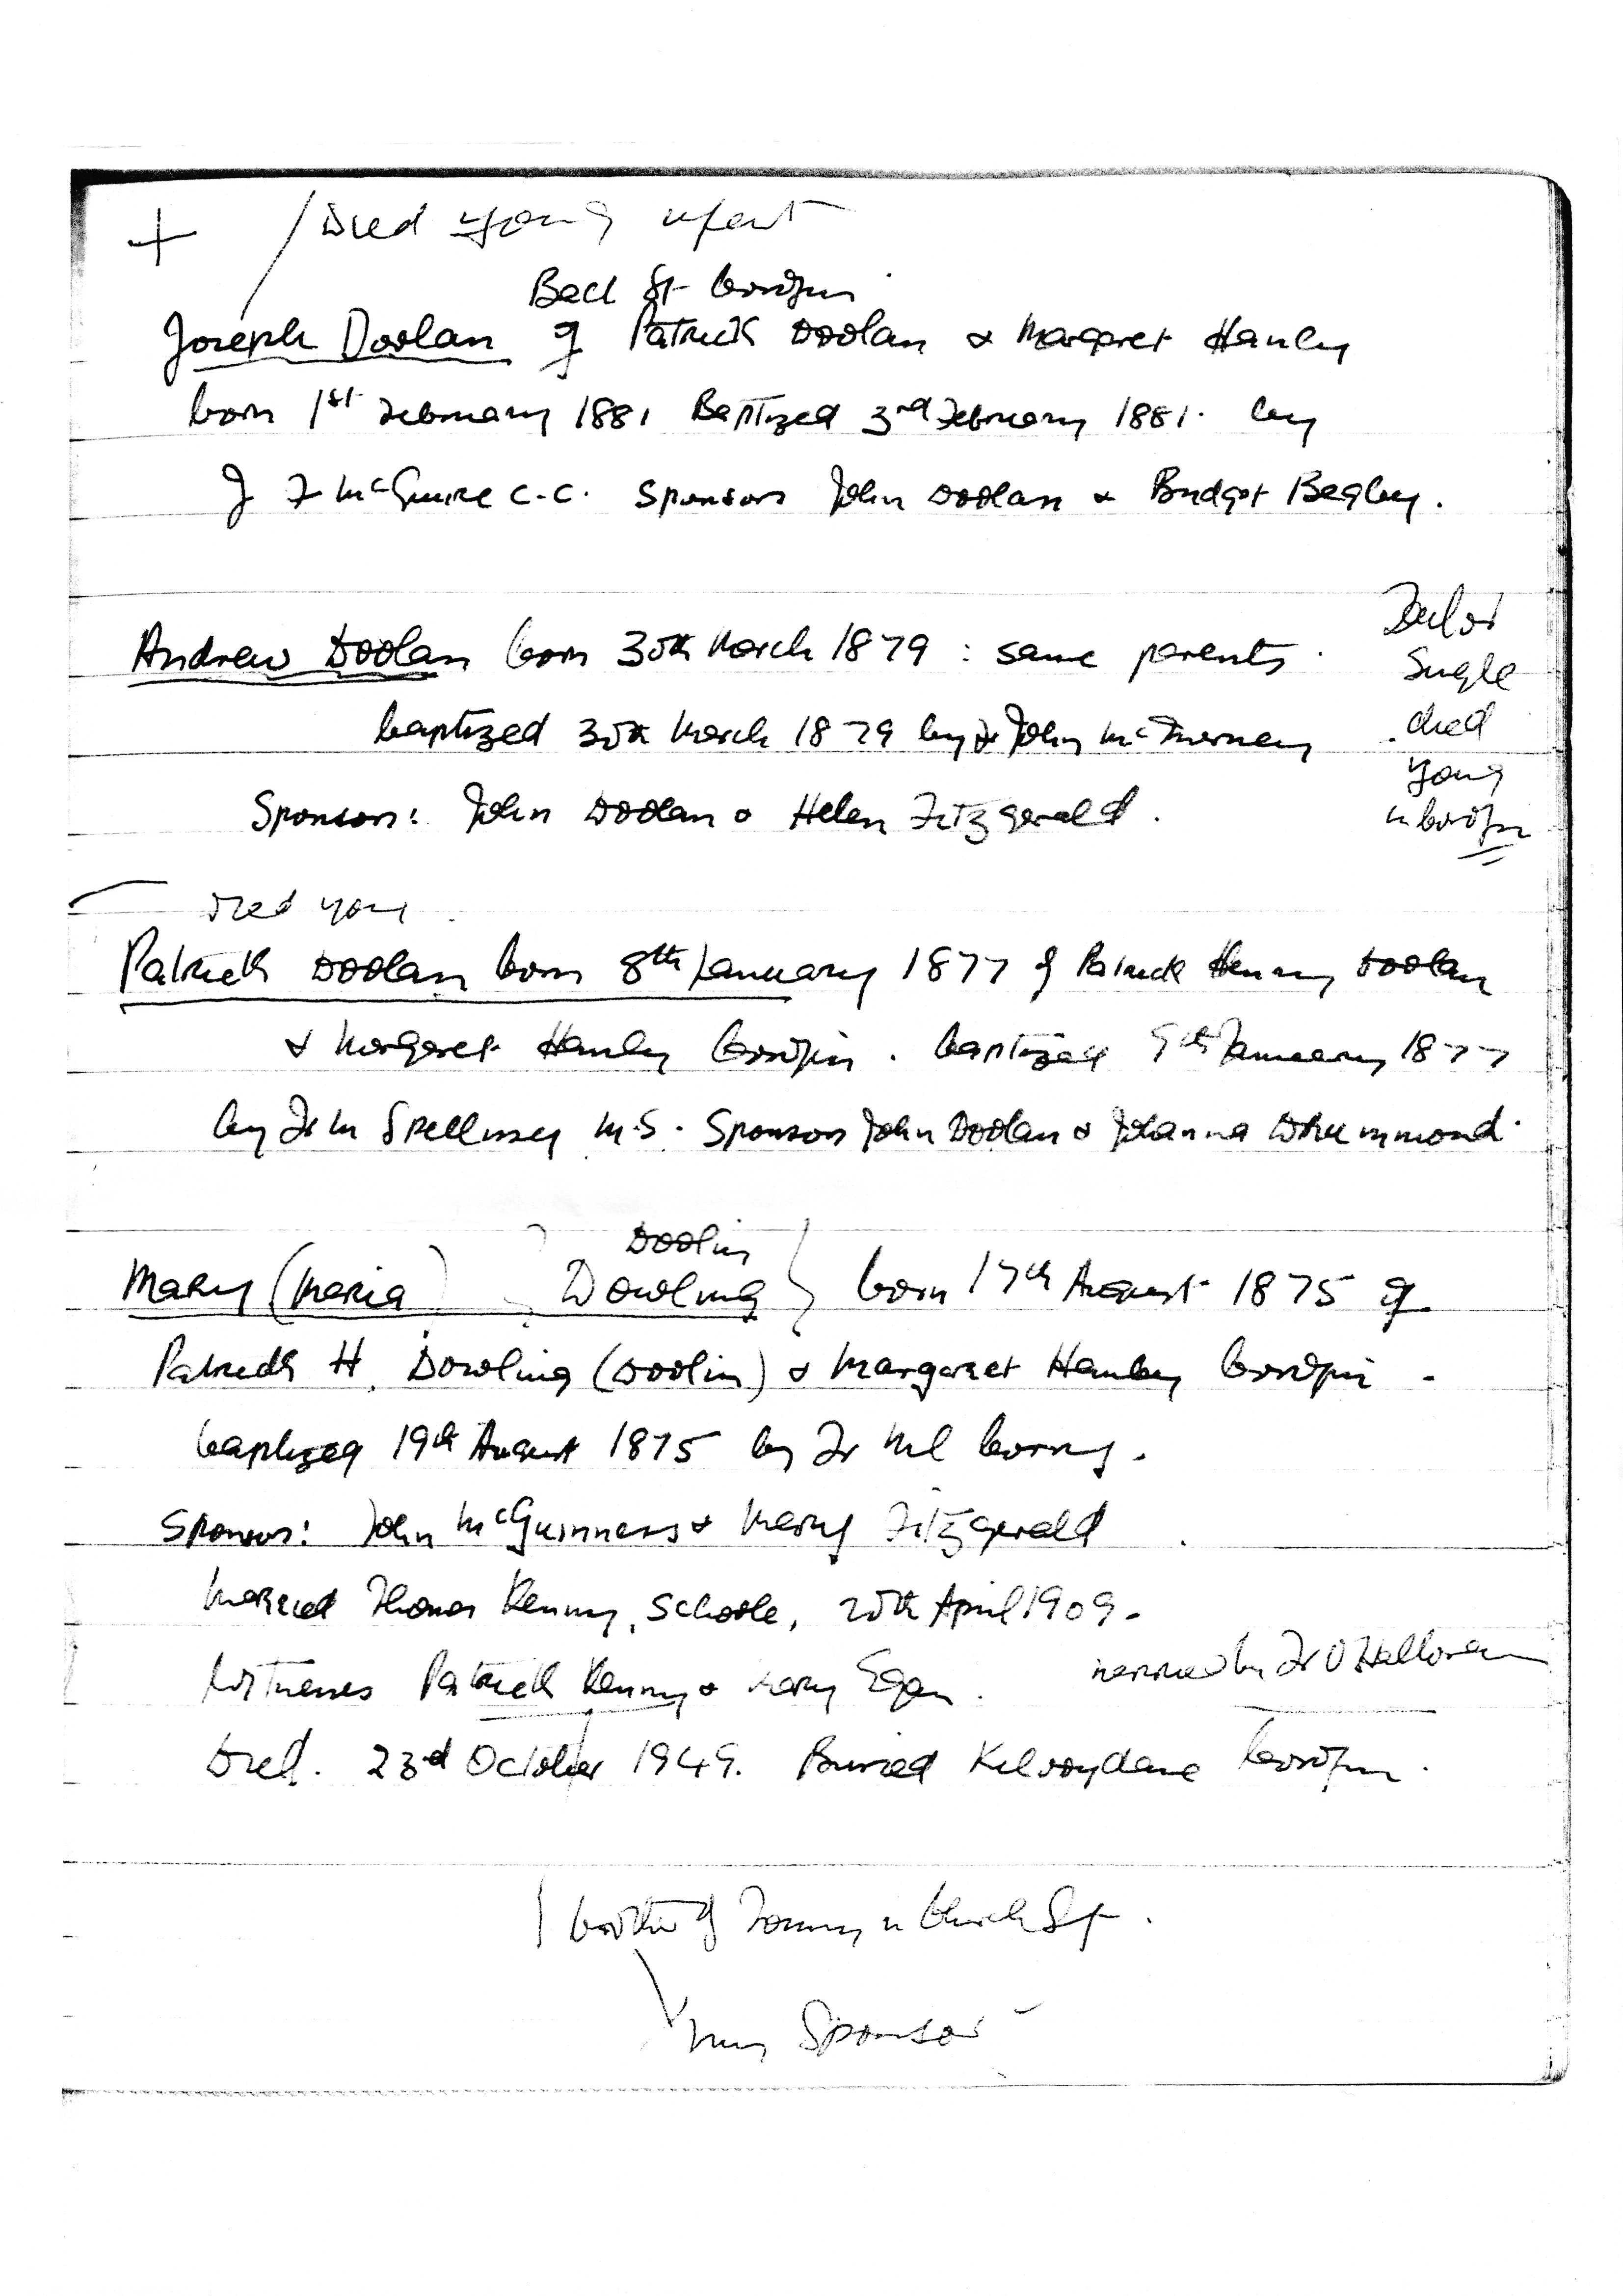 + / Died young infant
Back St Corofin
Joseph Doolan of Patrick Doolan & Margaret Hanley
born 1st February 1881 Baptized 3rd February 1881. by
J F McGuire C.C. Sponsors John Doolan & Bridget Begley.
Andrew Doolan born 30th March 1879 : same parents.
baptized 30th March 1879 by Fr John McInerney
Sponsors: John Doolan & Helen Fitzgerald.
Tailor
Single
died
young
in Corofin
Died young.
Patrick Doolan born 8th January 1877 of Patrick Henry Doolan
& Margaret Hanley Corofin. baptized 9th January 1877
by Fr M Spellissy M.S. Sponsors John Doolan & Johanna Drummond.
Doolin
Mary (Maria) Dowling } born 17th August 1875 of
Patrick H. Dowling (Doolin) & Margaret Hanley Corofin.
baptized 19th August 1875 by Fr Ml Corry.
Sponsors: John McGuinness & Mary Fitzgerald.
Married Thomas Kenny, Schoole, 20th April 1909.
Witnesses Patrick Kenny & Mary Egan. married by Fr O'Halloran
Died. 23rd October 1949. Buried Kilvoydane Corofin.
brother of Tommy in Church St.
My Sponsor